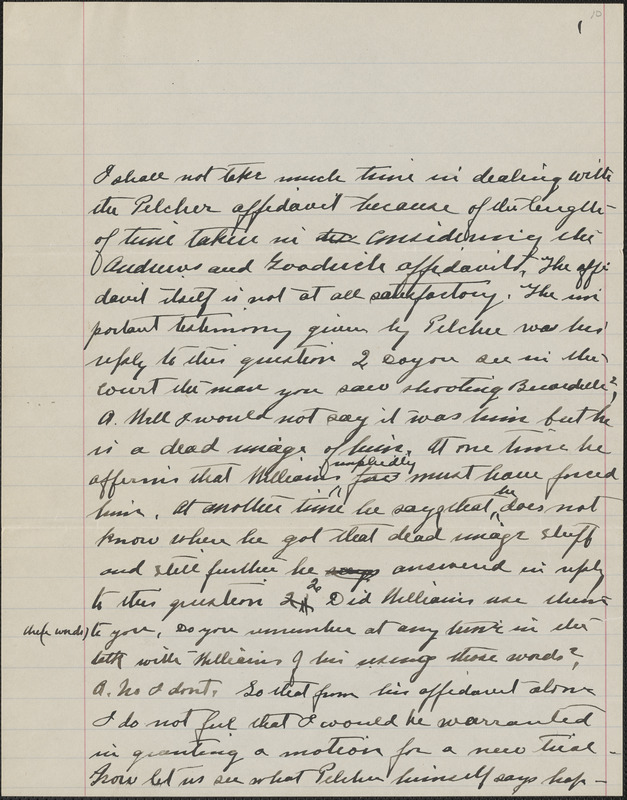 10
1
I shall not take much time in dealing with
the Pelzer affidavit because of the length
of time taken in the considering the
Andrews and Goodrich affidavits. The affi-
davit itself is not at all satisfactory. The im
portant testimony given by Pelzer was his
reply to this question Q Do you see in the
court the man you saw shooting Berardelli?
A. Well I would not say it was him but he
is a dead image of him. At one time he
affirms that Williams impliedly must have forced
him. At another time he says that he does not
know where he got that dead image stuff
and still further he says answered in reply
to this question Q Did Williams use them
(the words) to you. Do you remember at any time in the
talk with Williams of his using those words?
A. No I dont. So that from his affidavit alone
I do not feel that I would be warranted
in granting a motion for a new trial -
Now let us see what Pelzer himself says hap-